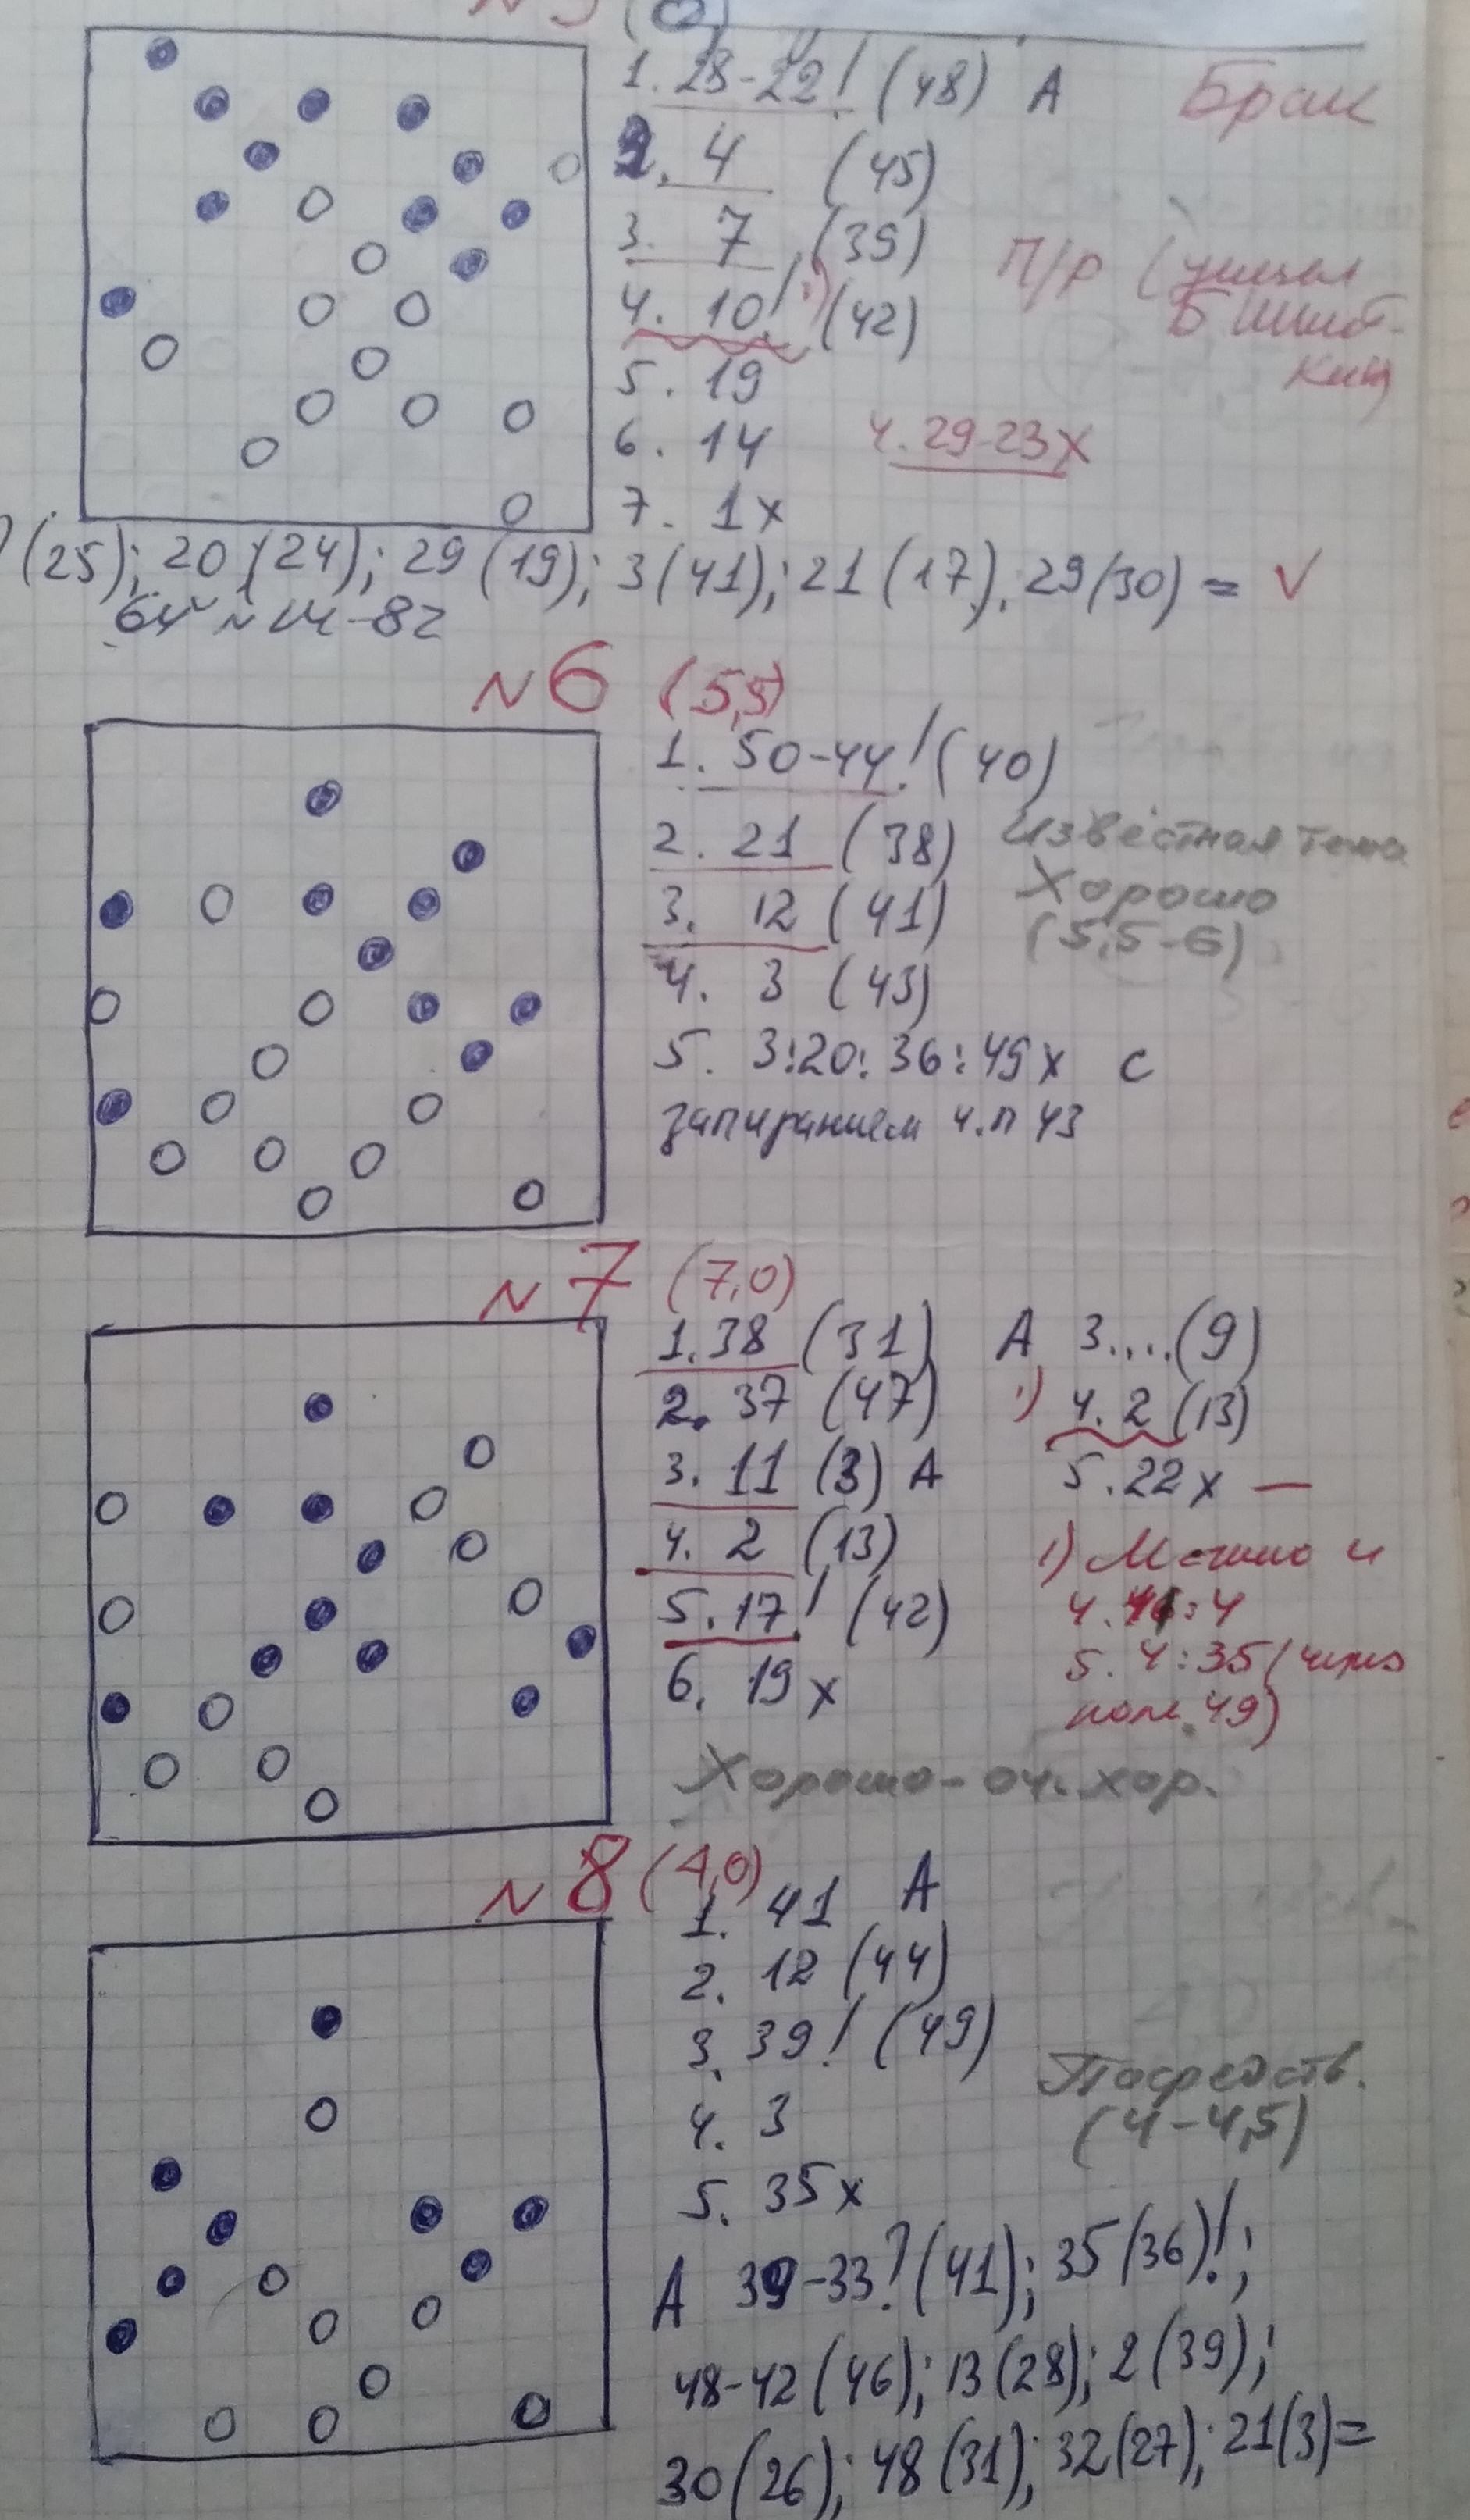 1. 28-22! (48) А Брак
2. 4 (45)
3. 7 (39) П/р (указал
4. 10! 1) (42) Б Шкит-
5. 19 кин)
6. 14 4. 29-23x
7. 1x
(25); 20 (24); 29 (19); 3 (41); 21 (17). 29 (30) = √
№6 (5,5)
1. 50-44! (40)
2. 21 (38) Известная тема
3. 12 (41) Хорошо
4. 3 (43) (5,5-6)
5. 3:20:36:49x с
запиранием ч.п 43
№7 (7,0)
1. 38 (31) А 3....(9)
2. 37 (47) 1) 4. 2 (13)
3. 11 (3) А 5. 22x —
4. 2 (13) 1) Можно и
5. 17! (42) 4. 46:4
6. 19x 5. 4:35 (через
поле 49)
Хорошо - оч. хор.
№8 (4,0)
1. 41 А
2. 12 (44)
3. 39! (49) Посредств.
4. 3 (4-4,5)
5. 35x
А 39-33? (41); 35 (36)!;
48-42 (46); 13 (28); 2 (39);
30 (26); 48 (31); 32 (27); 21 (3) =